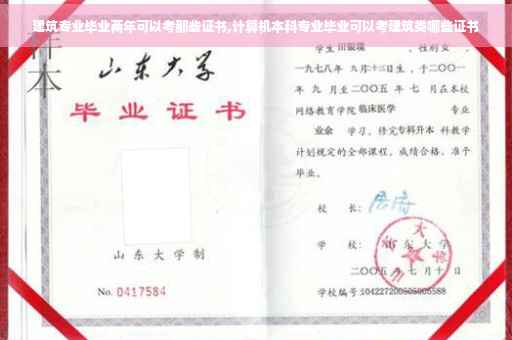 建筑专业毕业两年可以考那些证书,计算机本科专业毕业可以考建筑类哪些证书
样本
山东大学
毕业证书
山东大学制
No. 0417584
学生
性别女,
一九七八年 九月十三日生,于二〇〇一
年 九 月至二〇〇五 年 七 月在本校
网络教育学院临床医学 专业
业余 学习,修完专科升本 科教学
计划规定的全部课程,成绩合格,准予
毕业。
校 长:
学 校: 山东大学
二〇〇五年七月十日
学校编号: